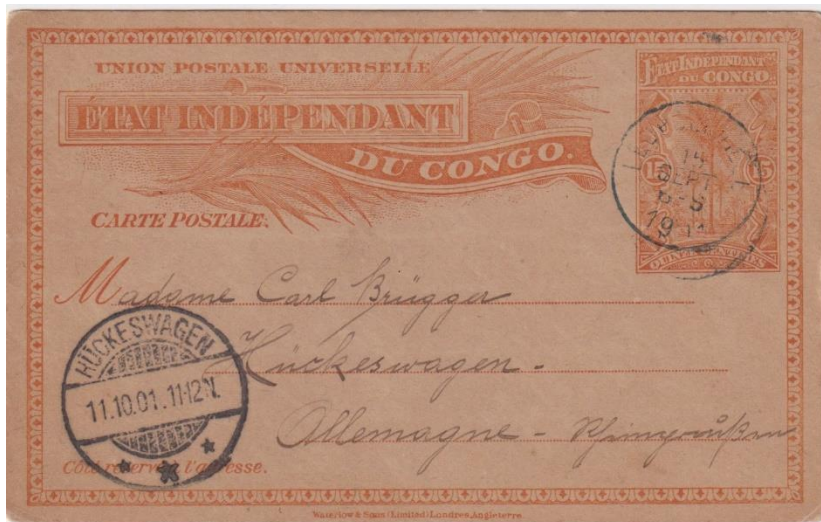 UNION POSTALE UNIVERSELLE
ÉTAT INDÉPENDANT
DU CONGO.
CARTE POSTALE.
ÉTAT INDÉPENDANT
DU CONGO
15 15
QUINZE CENTIMES
14
SEPT
19
Madame Carl Brügger
Hückeswagen -
Allemagne -
HÜCKESWAGEN
11.10.01.11-12N.
Côté réservé à l'adresse.
Waterlow & Sons Limited, Londres, Angleterre